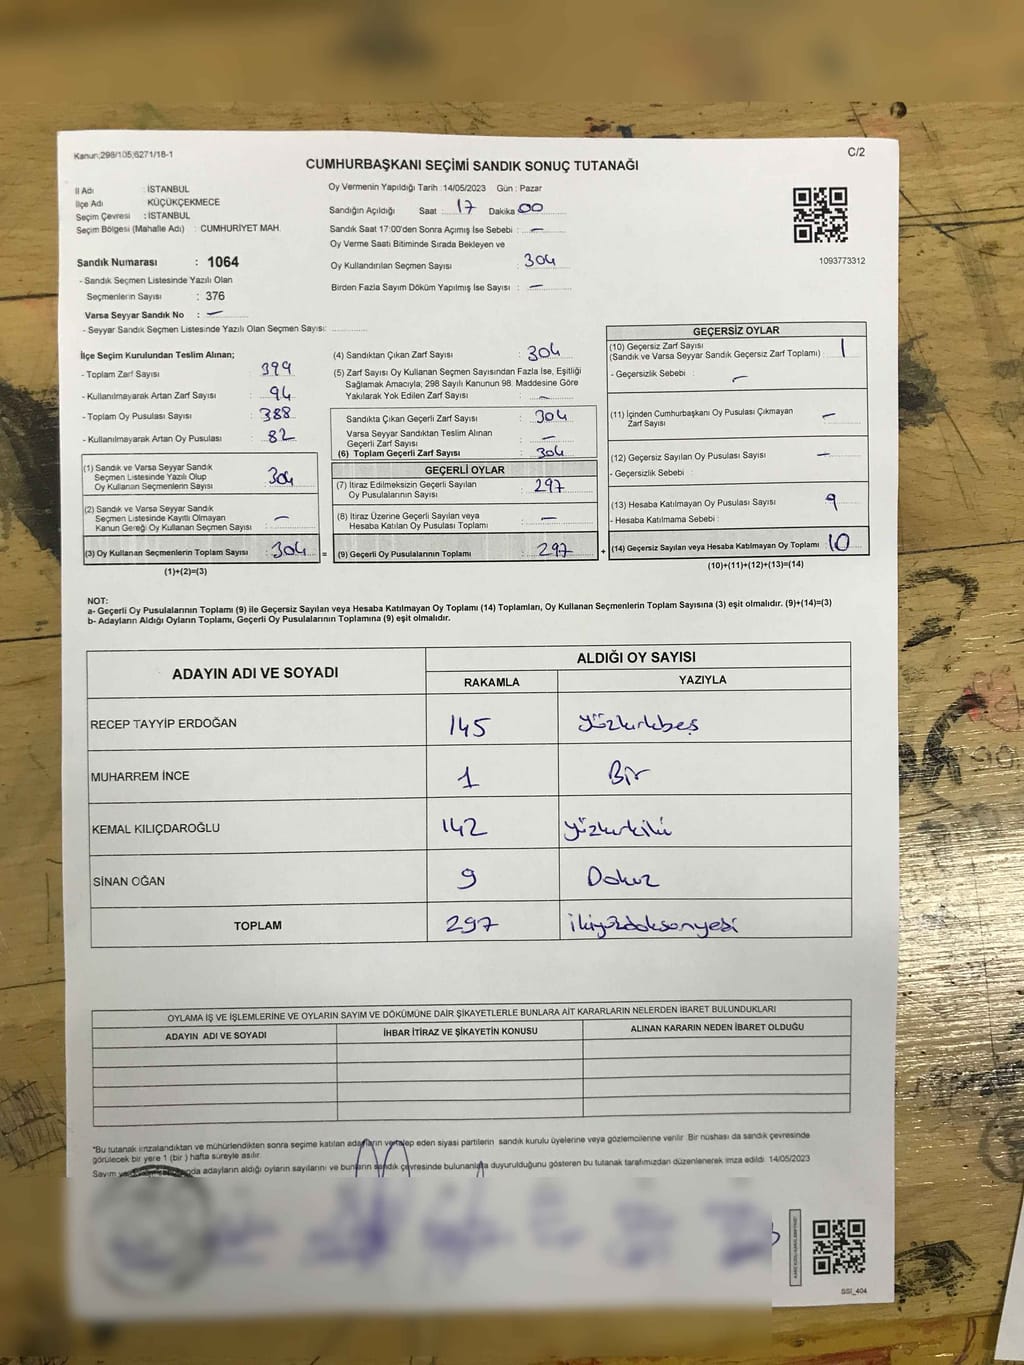 Kanun;298/105;6271/18-1
C/2
CUMHURBAŞKANI SEÇİMİ SANDIK SONUÇ TUTANAĞI
İl Adı : İSTANBUL
İlçe Adı KÜÇÜKÇEKMECE
Seçim Çevresi : İSTANBUL
Seçim Bölgesi (Mahalle Adı) : CUMHURİYET MAH.
Sandık Numarası : 1064
- Sandık Seçmen Listesinde Yazılı Olan
Seçmenlerin Sayısı : 376
Varsa Seyyar Sandık No : —
- Seyyar Sandık Seçmen Listesinde Yazılı Olan Seçmen Sayısı:
Oy Vermenin Yapıldığı Tarih :14/05/2023 Gün : Pazar
Sandığın Açıldığı Saat : 17 Dakika 00
Sandık Saat 17:00'den Sonra Açımış İse Sebebi : —
Oy Verme Saati Bitiminde Sırada Bekleyen ve
Oy Kullandırılan Seçmen Sayısı : 304
Birden Fazla Sayım Döküm Yapılmış İse Sayısı : —
1093773312
İlçe Seçim Kurulundan Teslim Alınan;
- Toplam Zarf Sayısı : 399
- Kullanılmayarak Artan Zarf Sayısı : 94
- Toplam Oy Pusulası Sayısı : 388
- Kullanılmayarak Artan Oy Pusulası : 82
(1) Sandık ve Varsa Seyyar Sandık
Seçmen Listesinde Yazılı Olup
Oy Kullanan Seçmenlerin Sayısı : 304
(2) Sandık ve Varsa Seyyar Sandık
Seçmen Listesinde Kayıtlı Olmayan
Kanun Gereği Oy Kullanan Seçmen Sayısı : —
(3) Oy Kullanan Seçmenlerin Toplam Sayısı : 304 =
(1)+(2)=(3)
(4) Sandıktan Çıkan Zarf Sayısı : 304
(5) Zarf Sayısı Oy Kullanan Seçmen Sayısından Fazla İse, Eşitliği
Sağlamak Amacıyla, 298 Sayılı Kanunun 98. Maddesine Göre
Yakılarak Yok Edilen Zarf Sayısı : —
Sandıkta Çıkan Geçerli Zarf Sayısı : 304
Varsa Seyyar Sandıktan Teslim Alınan
Geçerli Zarf Sayısı : —
(6) Toplam Geçerli Zarf Sayısı : 304
GEÇERLİ OYLAR
(7) İtiraz Edilmeksizin Geçerli Sayılan
Oy Pusulalarının Sayısı : 297
(8) İtiraz Üzerine Geçerli Sayılan veya
Hesaba Katılan Oy Pusulası Toplamı : —
(9) Geçerli Oy Pusulalarının Toplamı : 297 +
GEÇERSİZ OYLAR
(10) Geçersiz Zarf Sayısı
(Sandık ve Varsa Seyyar Sandık Geçersiz Zarf Toplamı) : 1
- Geçersizlik Sebebi : —
(11) İçinden Cumhurbaşkanı Oy Pusulası Çıkmayan
Zarf Sayısı : —
(12) Geçersiz Sayılan Oy Pusulası Sayısı : —
- Geçersizlik Sebebi :
(13) Hesaba Katılmayan Oy Pusulası Sayısı : 9
- Hesaba Katılmama Sebebi :
(14) Geçersiz Sayılan veya Hesaba Katılmayan Oy Toplamı : 10
(10)+(11)+(12)+(13)=(14)
NOT:
a- Geçerli Oy Pusulalarının Toplamı (9) ile Geçersiz Sayılan veya Hesaba Katılmayan Oy Toplamı (14) Toplamları, Oy Kullanan Seçmenlerin Toplam Sayısına (3) eşit olmalıdır. (9)+(14)=(3)
b- Adayların Aldığı Oyların Toplamı, Geçerli Oy Pusulalarının Toplamına (9) eşit olmalıdır.
ADAYIN ADI VE SOYADI
ALDIĞI OY SAYISI
RAKAMLA YAZIYLA
RECEP TAYYİP ERDOĞAN 145 yüzkırkbeş
MUHARREM İNCE 1 Bir
KEMAL KILIÇDAROĞLU 142 yüzkırkiki
SİNAN OĞAN 9 Dokuz
TOPLAM 297 ikiyüzdoksanyedi
OYLAMA İŞ VE İŞLEMLERİNE VE OYLARIN SAYIM VE DÖKÜMÜNE DAİR ŞİKAYETLERLE BUNLARA AİT KARARLARIN NELERDEN İBARET BULUNDUKLARI
ADAYIN ADI VE SOYADI İHBAR İTİRAZ VE ŞİKAYETİN KONUSU ALINAN KARARIN NEDEN İBARET OLDUĞU
*Bu tutanak imzalandıktan ve mühürlendikten sonra seçime katılan adayların ve talep eden siyasi partilerin sandık kurulu üyelerine veya gözlemcilerine verilir. Bir nüshası da sandık çevresinde
görülecek bir yere 1 (bir ) hafta süreyle asılır.
Sayım adayların aldığı oyların sayılarını ve bunların sandık çevresinde bulunanlara duyurulduğunu gösteren bu tutanak tarafımızdan düzenlenerek imza edildi. 14/05/2023
SSİ_404